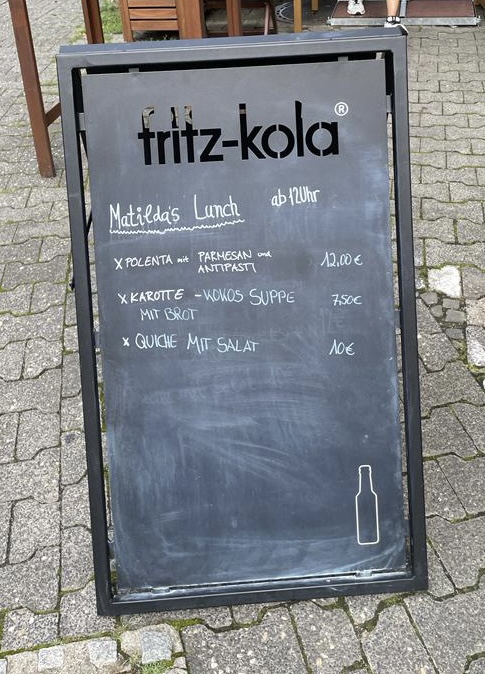 fritz-kola®
Matilda's Lunch ab 12 Uhr
x POLENTA mit PARMESAN und
ANTIPASTI 12,00 €
x KAROTTE - KOKOS SUPPE 7,50€
MIT BROT
x QUICHE MIT SALAT 10€